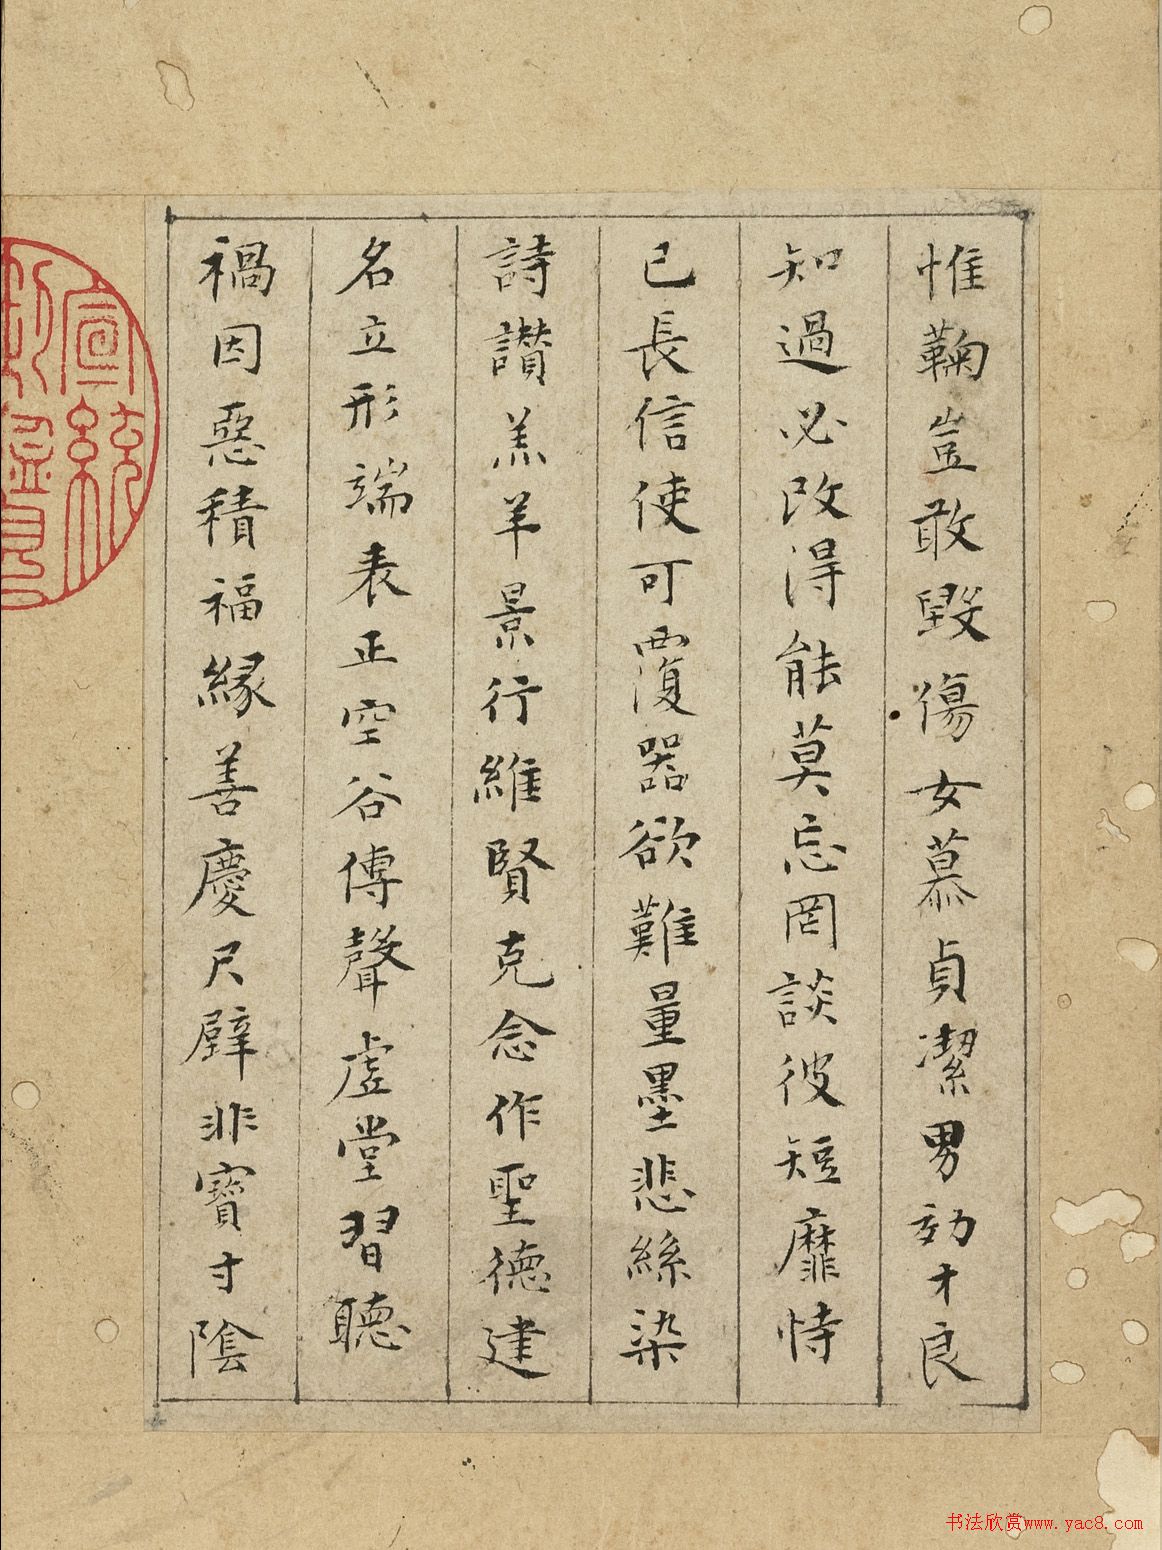 惟鞠豈敢毀傷女慕貞潔男効才良
知過必改得能莫忘罔談彼短靡恃
已長信使可覆器欲難量墨悲絲染
詩讚羔羊景行維賢克念作聖德建
名立形端表正空谷傳聲虛堂習聽
禍因惡積福緣善慶尺璧非寶寸陰
宣統
书法欣赏www.yac8.com